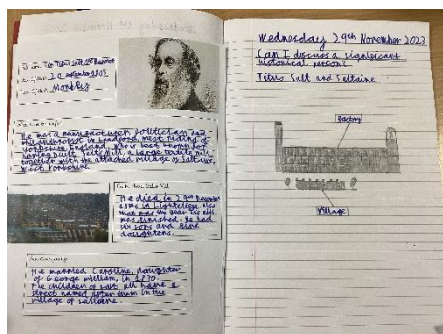 Titus Salt 1st Baronet
20 September 1803
Morley
He was a manufacturer, politician and
philanthropist in Bradford, West Riding of
Yorkshire England, who is best known for
having built Salt's Mill, a large textile mill
together with the attached village of Saltaire,
West Yorkshire.
He died in 29th December
1876 in Lightcliffe, also
that was the year his
was finished. He had
six sons and five
daughters.
He married Caroline, daughter
of George William, in 1830.
The children of salt all have a
street named after them in the
village of Saltaire.
Wednesday 29th November 2023
Can I discuss a significant
historical person
Titus Salt and Saltaire
factory
Village